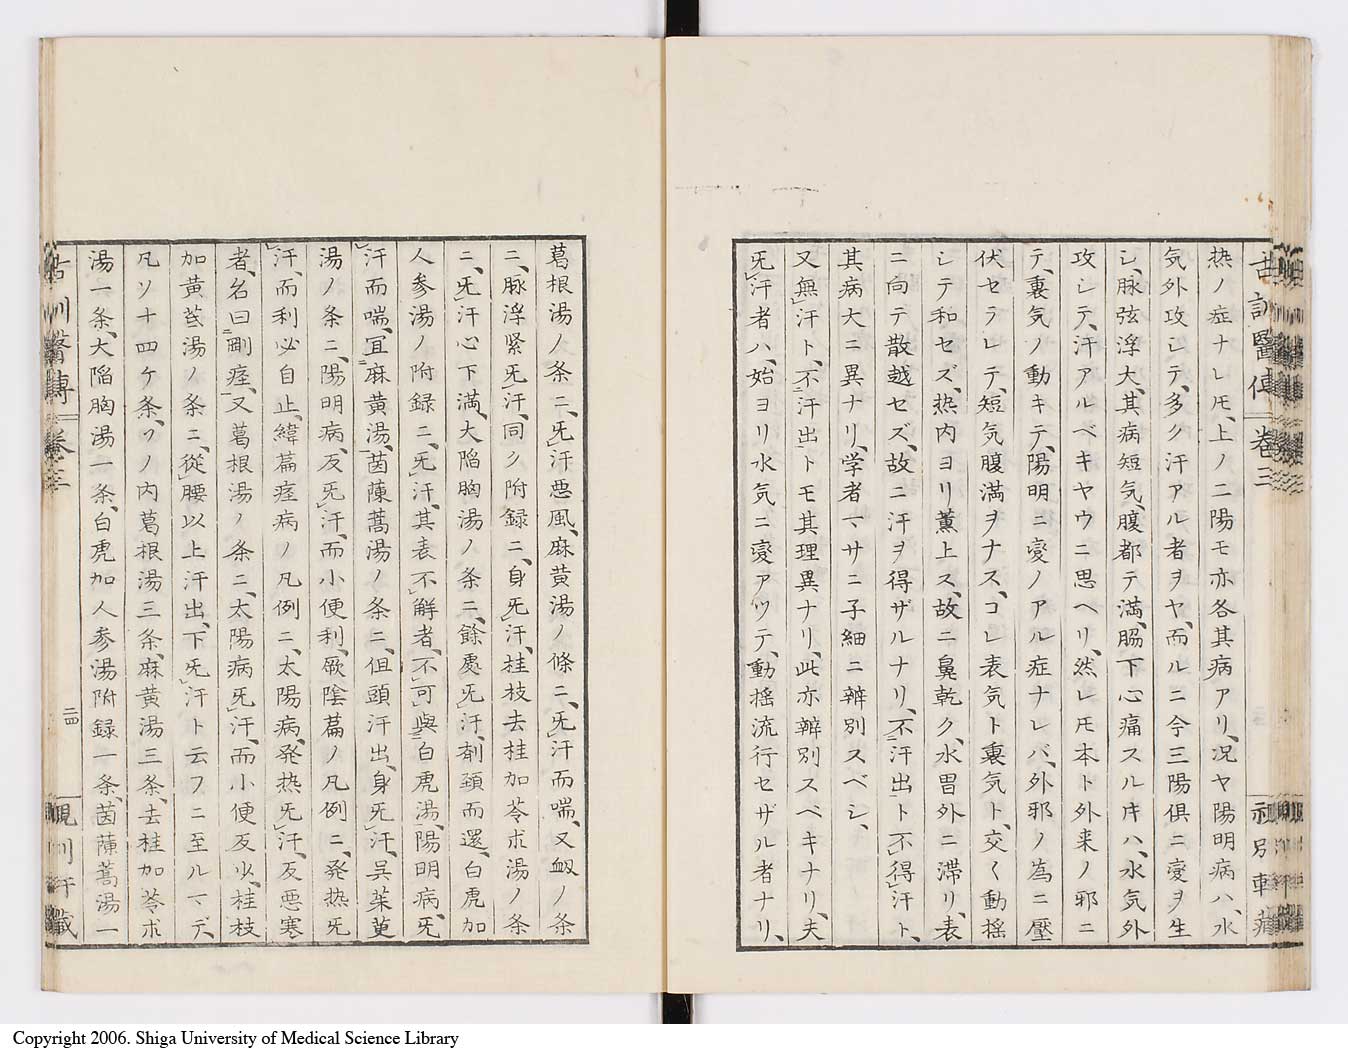 古訓醫傳 巻三
熱ノ症ナレㇳモ、上ノ二陽モ亦各其病アリ、况ヤ陽明病ハ、水
気外攻シテ、多ク汗アル者ヲヤ、而ルニ今三陽俱ニ変ヲ生
シ、脉弦浮大、其病短気、腹都テ満、脇下心痛スル𪜈ハ、水気外
攻シテ、汗アルベキヤウニ思ヘリ、然レ𪜈本ト外来ノ邪ニ
テ、裏気ノ動キテ、陽明ニ変ノアル症ナレバ、外邪ノ為ニ壓
伏セラレテ、短気腹満ヲナス、コレ表気ト裏気ト、交〱動揺
シテ和セズ、热内ヨリ薫上ス、故ニ鼻乾ク、水冒外ニ滞リ、表
ニ向テ散越セズ、故ニ汗ヲ得ザルナリ、不汗出ト不得汗ト、
其病大ニ異ナリ、学者マサニ子細ニ辨別スベシ、
又無汗ト、不汗出トモ其理異ナリ、此亦辨別スベキナリ、夫
旡汗者ハ、始ヨリ水気ニ変アツテ、動揺流行セザル者ナリ、
葛根湯ノ条ニ、旡汗悪風、麻黄湯ノ條ニ、旡汗而喘、又衂ノ条
ニ、脉浮紧旡汗、同ク附録ニ、身旡汗、桂枝去桂加苓朮湯ノ条
ニ、旡汗心下満、大陥胸湯ノ条ニ、餘處旡汗、剤頚而還、白虎加
人参湯ノ附録ニ、旡汗、其表不解者、不可與白虎湯、陽明病、旡
汗而喘、冝麻黄湯、茵蔯蒿湯ノ条ニ、但頭汗出、身旡汗、呉茱萸
湯ノ条ニ、陽明病、反旡汗、而小便利、厥陰篇ノ凡例ニ、発热旡
汗、而利必自止、緯篇痓病ノ凡例ニ、太陽病、発热旡汗、反悪寒
者、名曰剛痓、又葛根湯ノ条ニ、太陽病旡汗、而小便反少、桂枝
加黄芪湯ノ条ニ、從腰以上汗出、下旡汗ト云フニ至ルマデ、
凡ソ十四ケ条、ソノ内葛根湯三条、麻黄湯三条、去桂加苓朮
湯一条、大陥胸湯一条、白虎加人参湯附録一条、茵蔯蒿湯一
古訓醫傳 巻三 二四